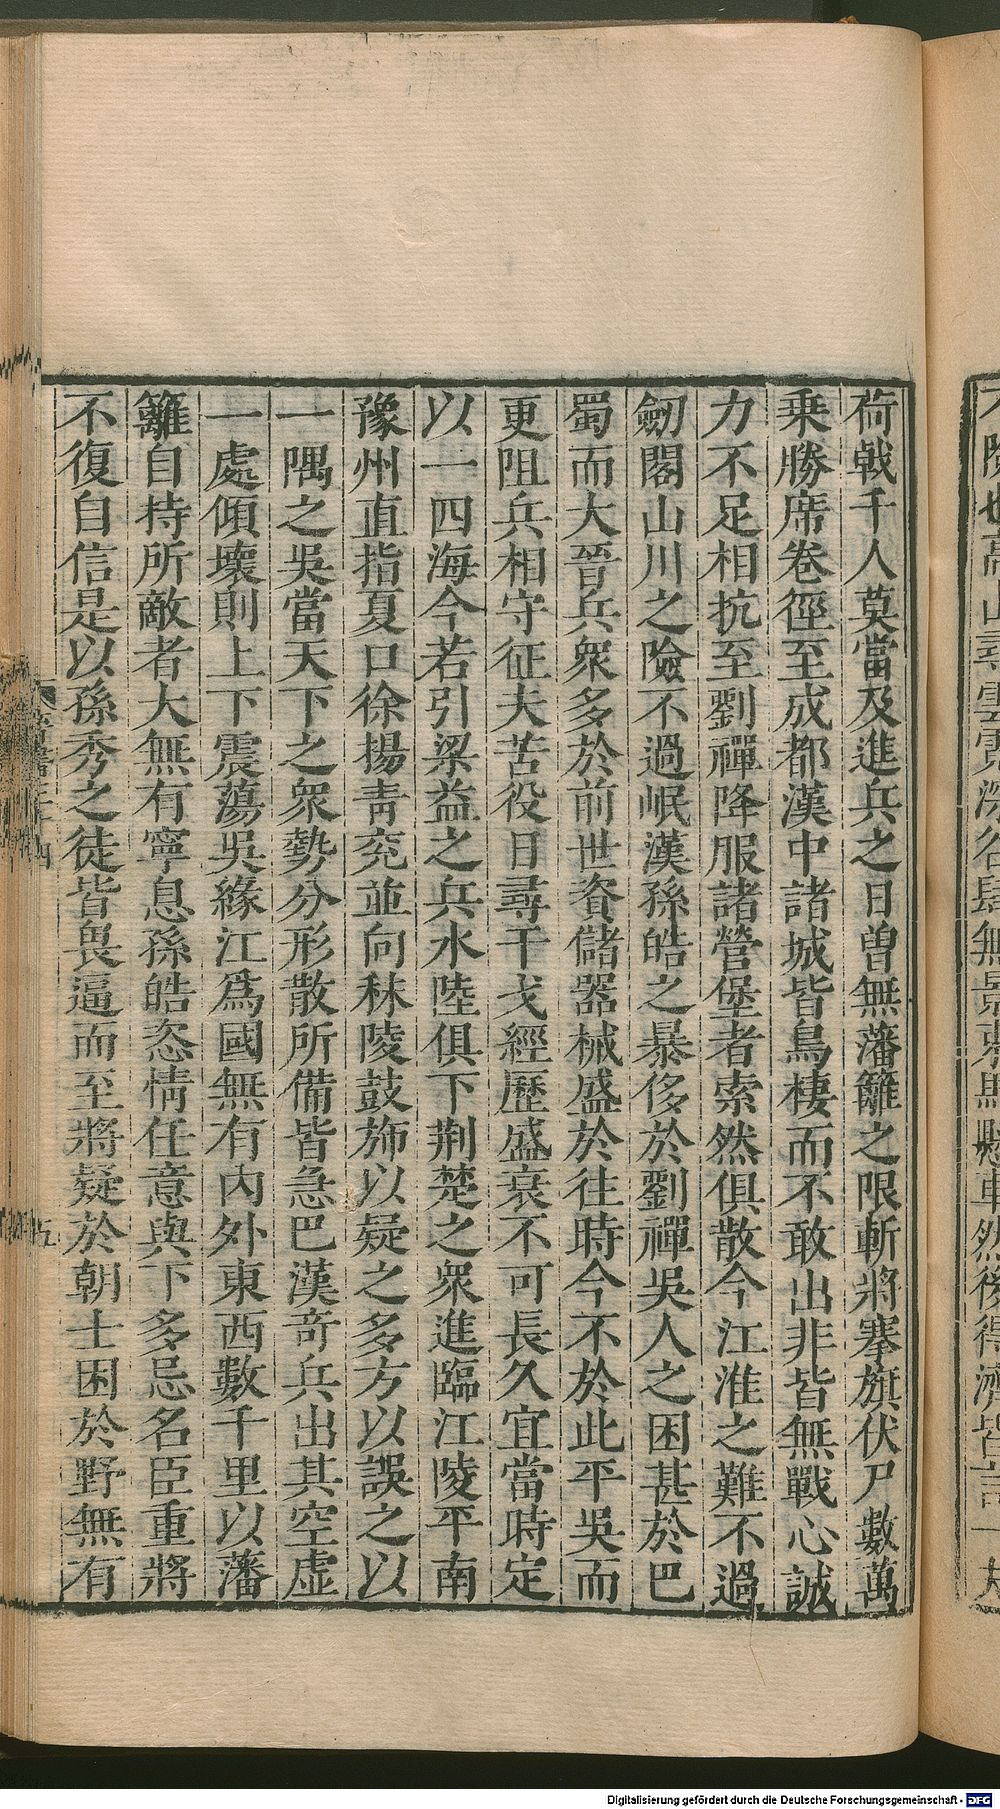 荷戟千人莫當及進兵之日曾無藩籬之限斬將搴旗伏尸數萬
乗勝席卷徑至成都漢中諸城皆鳥棲而不敢出非皆無戰心誠
力不足相抗至劉禪降服諸營堡者索然俱散今江淮之難不過
劒閣山川之險不過岷漢孫皓之暴侈於劉禪吳人之困甚於巴
蜀而大晉兵衆多於前世資儲器械盛於往時今不於此平吳而
更阻兵相守征夫苦役日尋干戈經歷盛衰不可長久宜當時定
以一四海今若引梁益之兵水陸俱下荆楚之衆進臨江陵平南
豫州直指夏口徐揚青兖並向秣陵鼓斾以疑之多方以誤之以
一隅之吳當天下之衆勢分形散所備皆急巴漢奇兵出其空虚
一處傾壞則上下震蕩吳緣江爲國無有內外東西數千里以藩
籬自持所敵者大無有寧息孫皓恣情任意與下多忌名臣重將
不復自信是以孫秀之徒皆畏逼而至將疑於朝士困於野無有
五
Digitalisierung gefördert durch die Deutsche Forschungsgemeinschaft - DFG